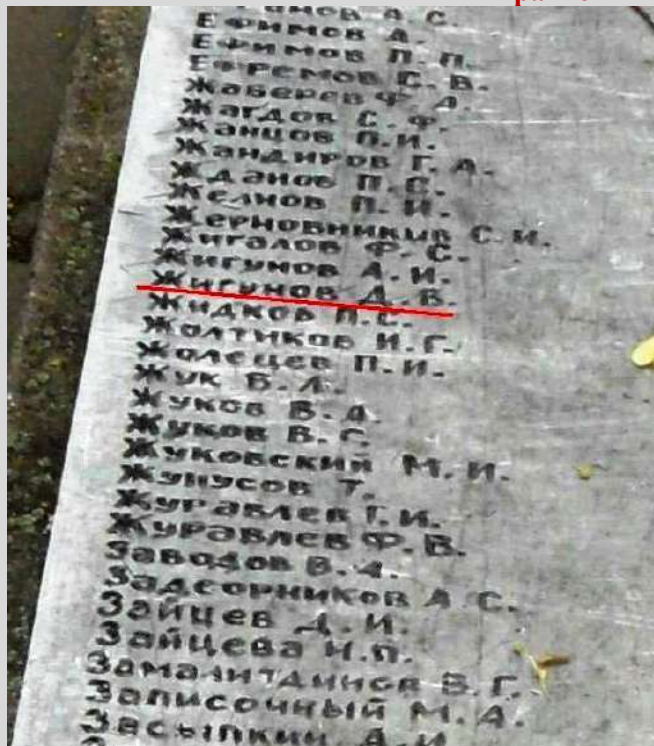 А. С.
Ефимов А.
Ефимов П. П.
Ефремов С. В.
Жаберев Ф. А.
Жагдов С. Ф.
Жанцов П. И.
Жандиров Г. А.
Жданов П. С.
Желнов П. И.
Жерновников С. И.
Жигалов Ф. С.
Жигунов А. И.
Жигунов Д. В.
Жидков П. С.
Жолтиков И. Г.
Жолецев П. И.
Жук В. Л.
Жуков В. А.
Жуков В. С.
Жуковский М. И.
Жунусов Т.
Журавлев Г. И.
Журавлев Ф. В.
Заводов В. А.
Задсорников А С.
Зайцев Д. И.
Зайцева Н. П.
Замалитдинов В. Г.
Записочный М. А.
Засыпкин А. И